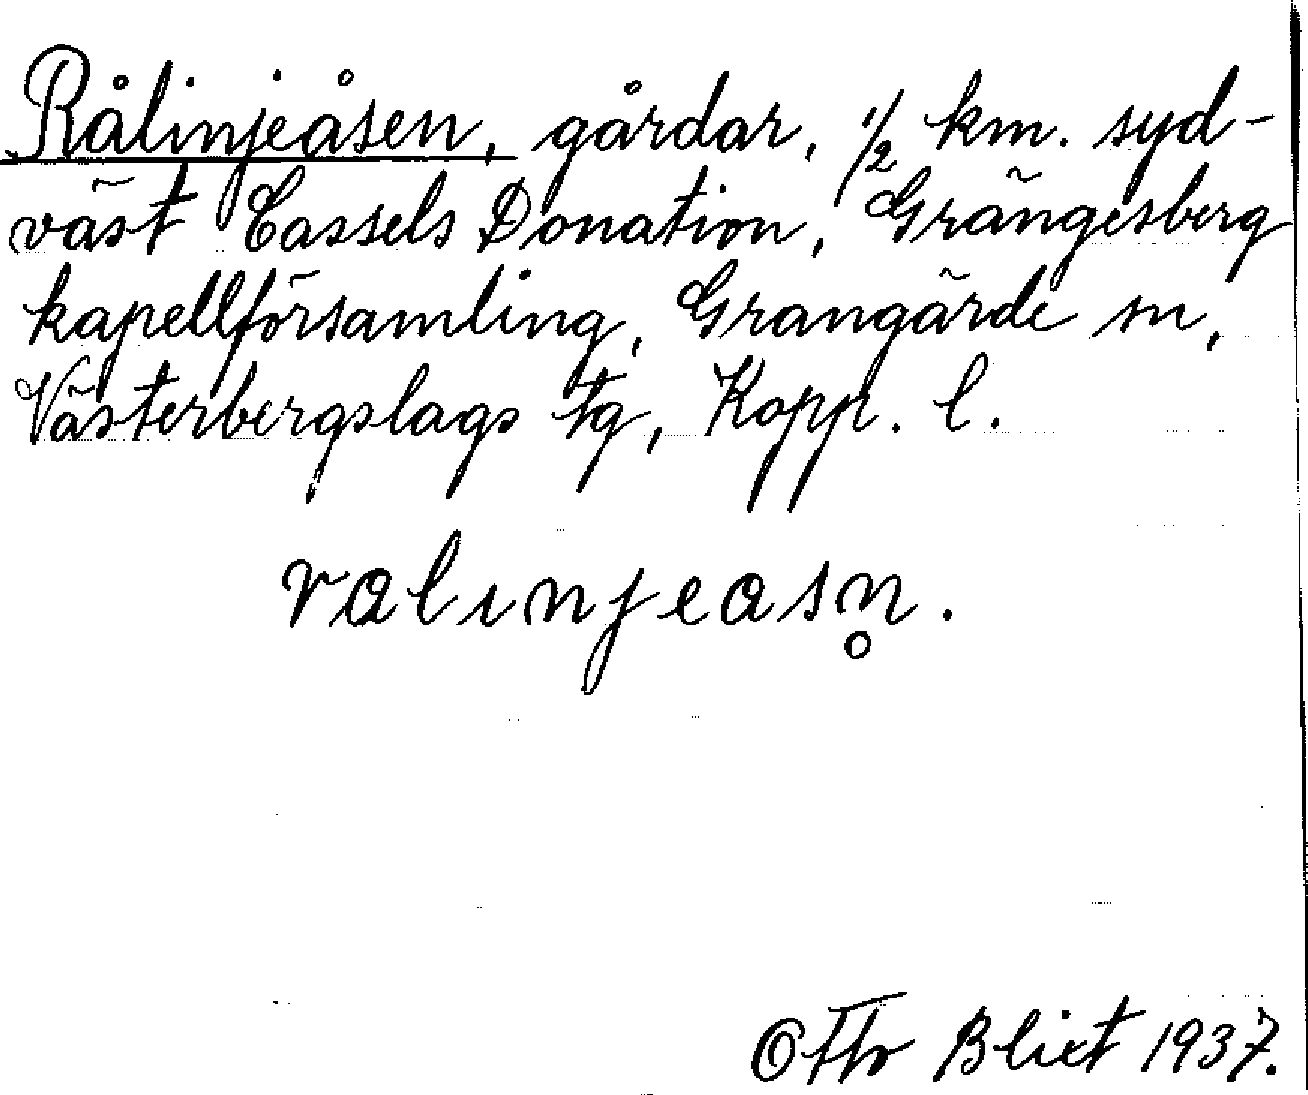 Rålinjeåsen, gårdar, 1/2 km. syd-
väst Cassels Donation, Grängesberg
kapellförsamling, Grangärde sn,
Västerbergslags tg, Kopp. l.
ralınjeasn̥.
Otto Blixt 1937.